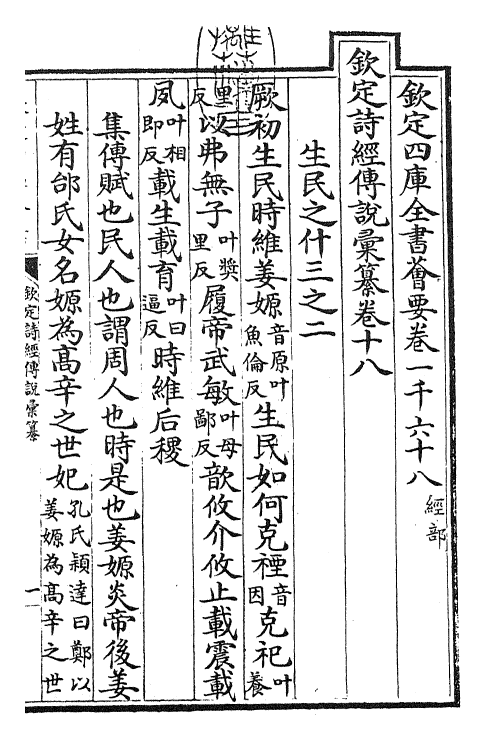 欽定四庫全書薈要卷一千六十八 經部
欽定詩經傳說彙纂卷十八
生民之什三之二
厥初生民時維姜嫄音原叶魚倫反生民如何克禋音因克祀叶養
里反以弗無子叶奬里反履帝武敏叶母鄙反歆攸介攸止載震載
夙叶相即反載生載育叶曰逼反時維后稷
集傳賦也民人也謂周人也時是也姜嫄炎帝後姜
姓有邰氏女名嫄為高辛之世妃孔氏穎達曰鄭以姜嫄為高辛之世
欽定詩經傳說彙纂
一